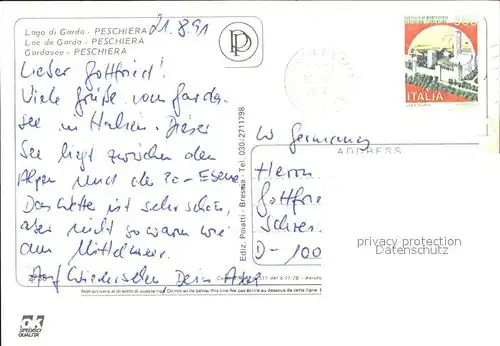 Lago di Garda - PESCHIERA
Lac de Garda - PESCHIERA
Gardasee - PESCHIERA
21.8.91
Lieber Gottfried!
Viele Grüße vom Garda-
see in Italien. Dieser
See liegt zwischen den
Alpen und der Po-Ebene
Das Wetter ist sehr schön,
aber nicht so warm wie
am Mittelmeer.
Auf Wiedersehen Dein Axel
Ediz. Poiatti - Brescia - Tel. 030/2711798
ITALIA
W Germany
ADDRESS
Herrn
Gottfrie
Schrei
D-100
privacy protection
Datenschutz
Non scrivere al di sotto di questa riga / Do not write below this line / Ne pas écrire au dessous de cette ligne
ok
SPEDISCI
QUALITA'